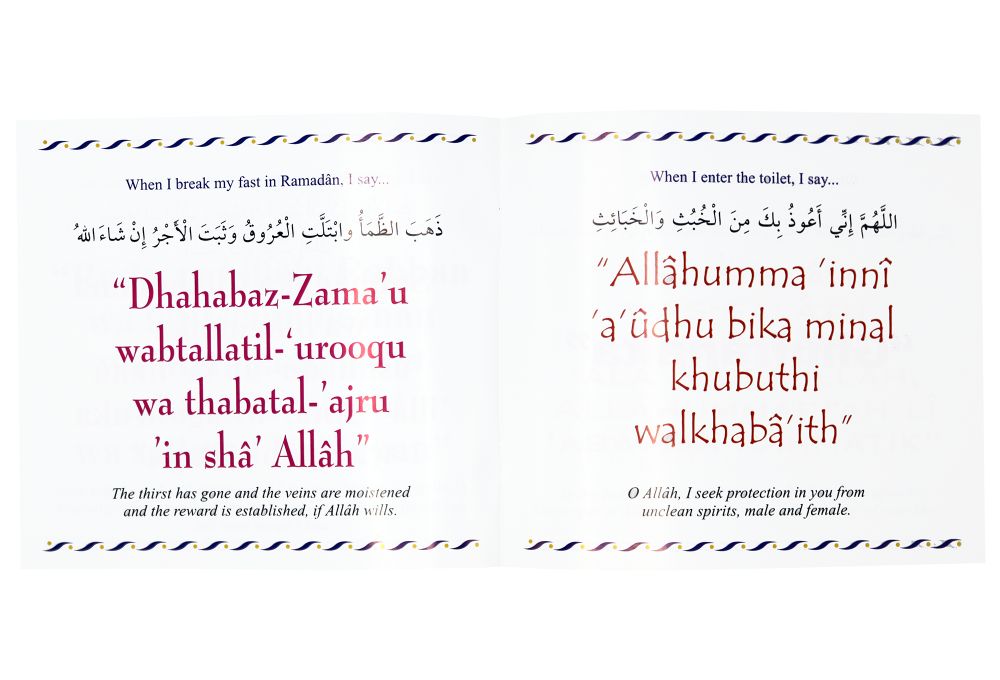 When I break my fast in Ramadân, I say...
ذَهَبَ الظَّمَأُ وابْتَلَّتِ الْعُرُوقُ وَثَبَتَ الْأَجْرُ إِنْ شَاءَ اللهُ
“Dhahabaz-Zama’u
wabtallatil-‘urooqu
wa thabatal-’ajru
’in shâ’ Allâh”
The thirst has gone and the veins are moistened
and the reward is established, if Allâh wills.
When I enter the toilet, I say...
اللَّهُمَّ إِنِّي أَعُوذُ بِكَ مِنَ الْخُبُثِ وَالْخَبَائِثِ
“Allâhumma ’innî
’a‘ûdhu bika minal
khubuthi
walkhabâ’ith”
O Allâh, I seek protection in you from
unclean spirits, male and female.